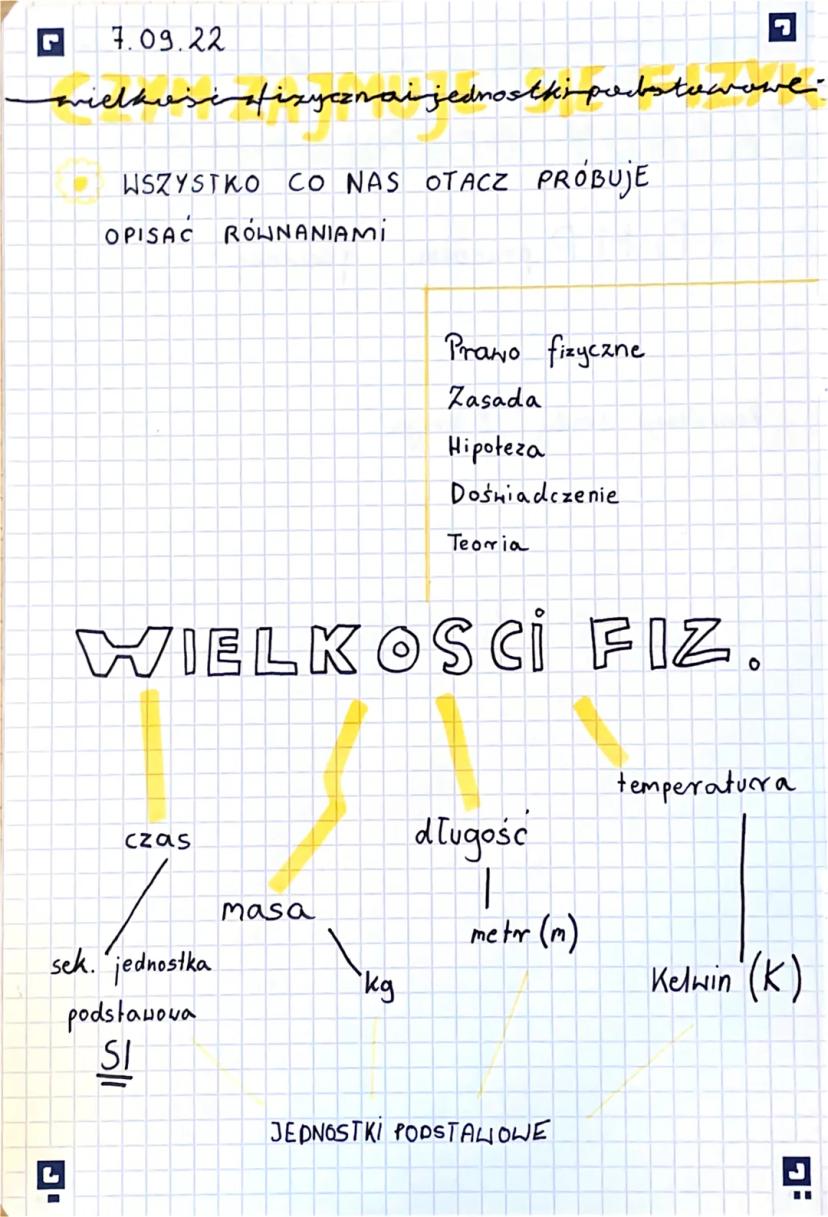 7.09.22
CZYM ZAJMUJE SIĘ FIZYK
wielkości fizyczna i jednostki podstawowe
WSZYSTKO CO NAS OTACZ PRÓBUJE
OPISAĆ RÓWNANIAMI
Prawo fizyczne
Zasada
Hipoteza
Doświadczenie
Teoria
WIELKOSCI FIZ.
temperatura
czas
długość
masa
metr (m)
sek. jednostka
kg
Kelwin (K)
podstawowa
SI
JEDNOSTKI PODSTAWOWE